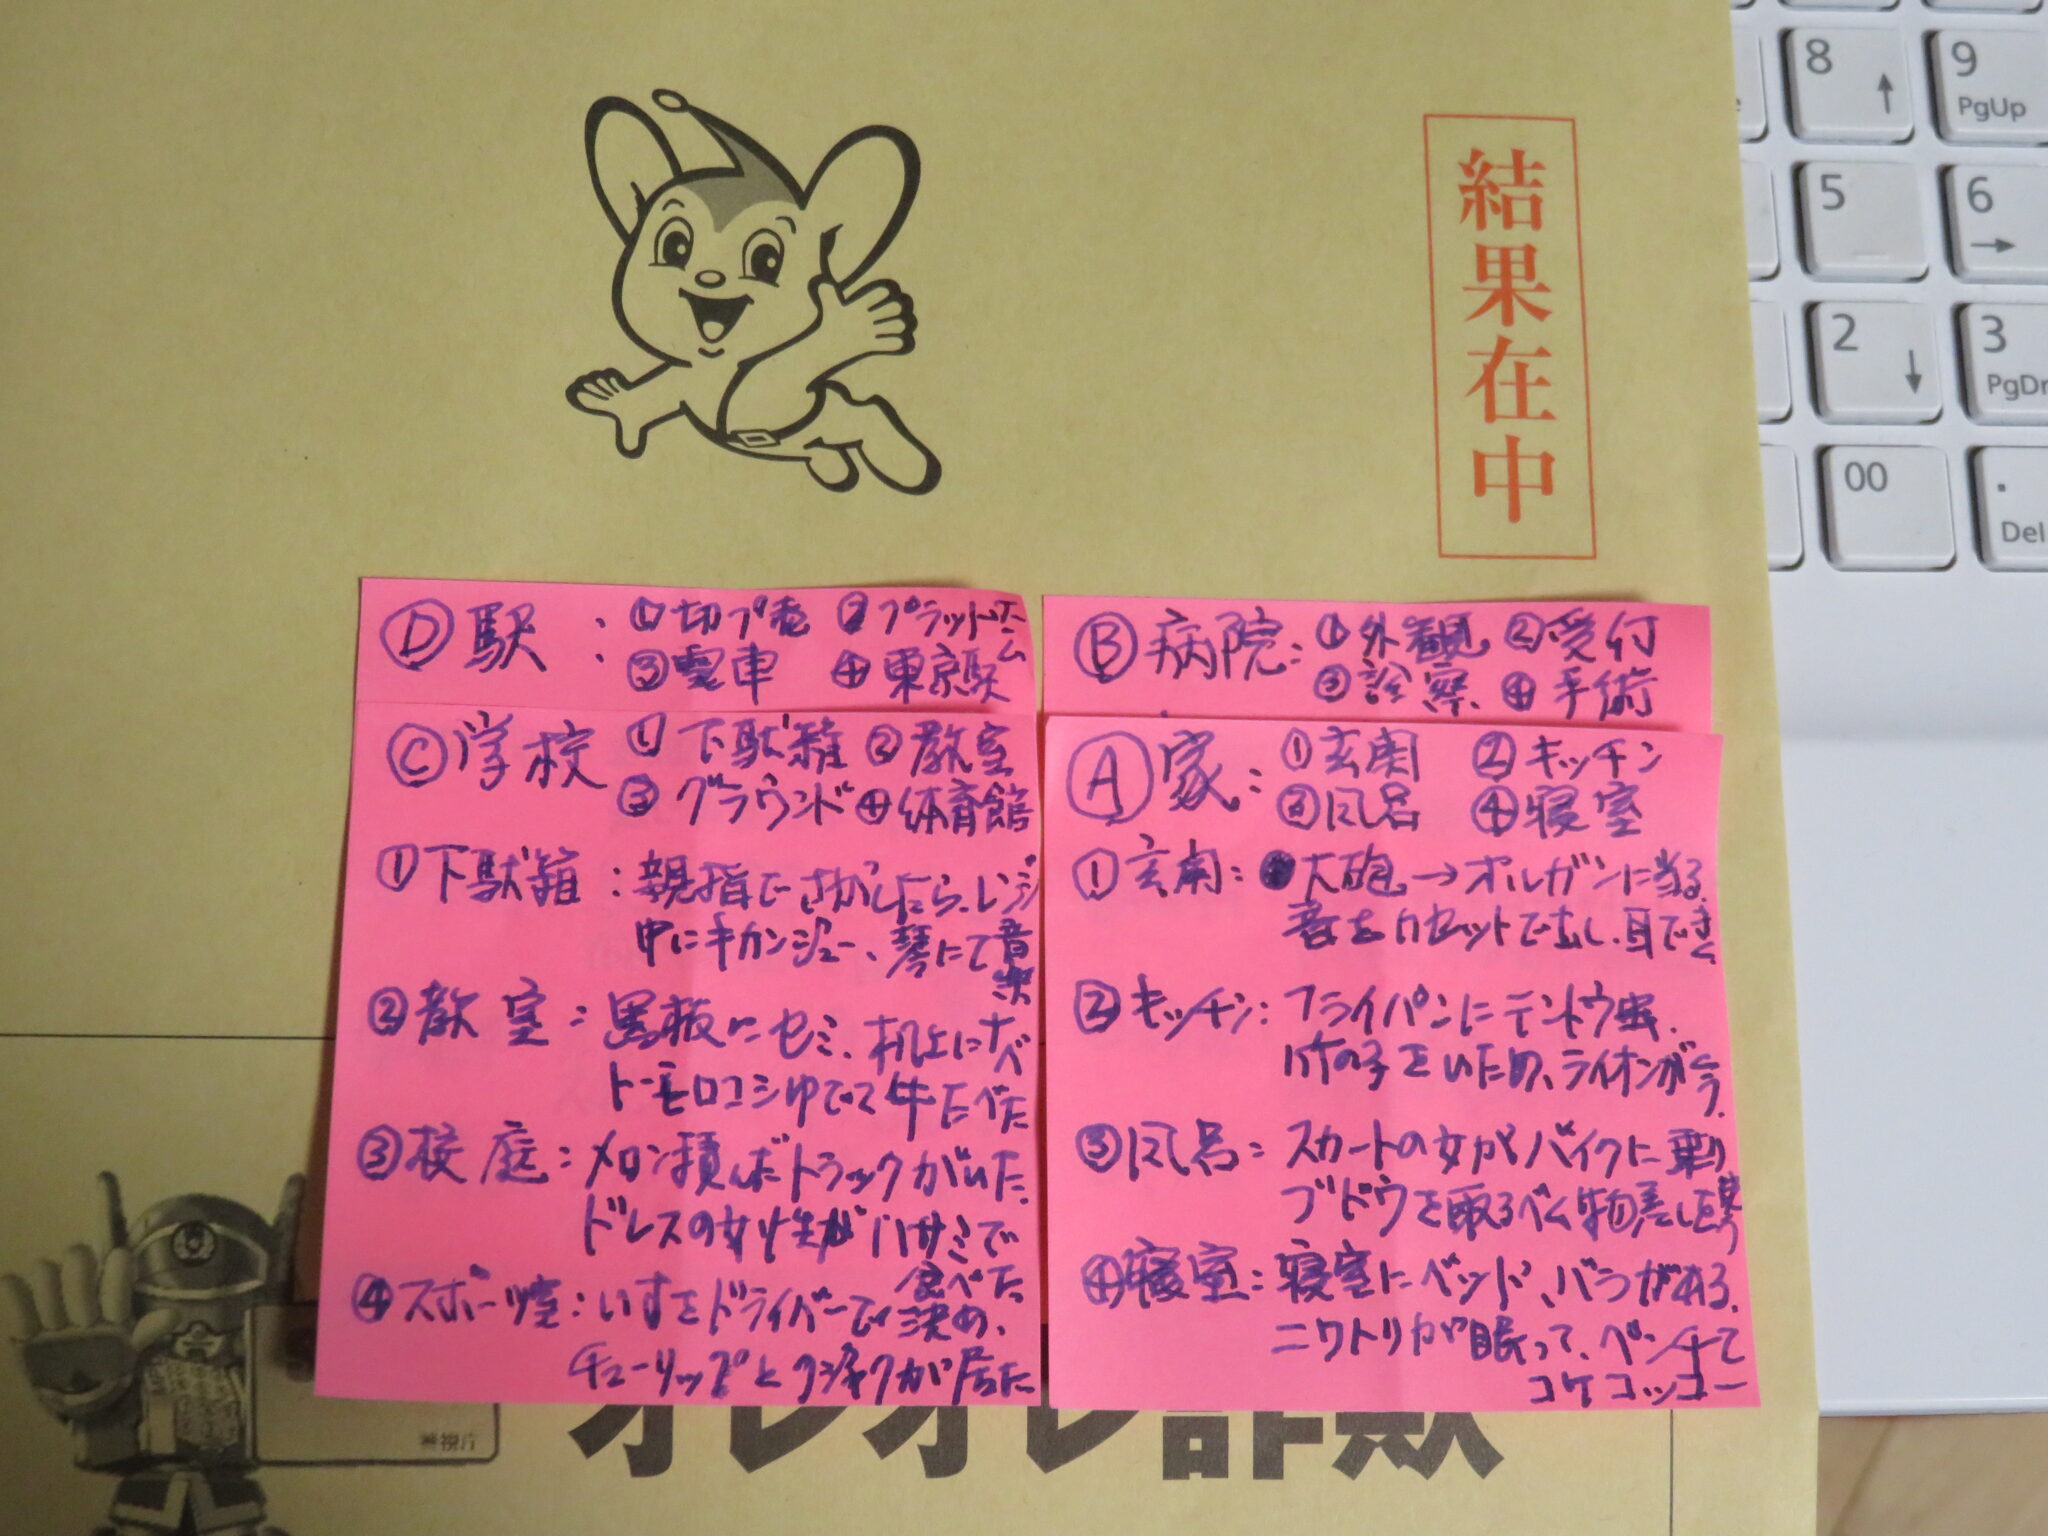 結果在中
Ⓓ駅：①切プ売 ②プラットホーム
③電車 ④東京駅
Ⓒ学校 ①下駄箱 ②教室
③グラウンド ④体育館
①下駄箱：親指でさがしたら、レジ
中にキカンジュー、琴にて音楽
②教室：黒板にセミ、机上にナベ
トーモロコシゆでて牛たべた
③校庭：メロン積んだトラックがいた。
ドレスの女性がハサミで
食べた
④スポーツ室：いすをドライバーで決め、
チューリップとクジャクが居た
Ⓑ病院：①外観 ②受付
③診察 ④手術
Ⓐ家：①玄関 ②キッチン
③風呂 ④寝室
①玄関：大砲→オルガンに当る。
音をカセットで出し、耳できく
②キッチン：フライパンにテントウ虫。
竹の子をいため、ライオンが食う。
③風呂：スカートの女がバイクに乗り
ブドウを取るべく物差しを使う
④寝室：寝室にベッド、バラがある。
ニワトリが眠って、ペンチで
コケコッコー
オレオレ詐欺
警視庁
8
9
PgUp
5
6
2
3
PgDn
00
.
Del